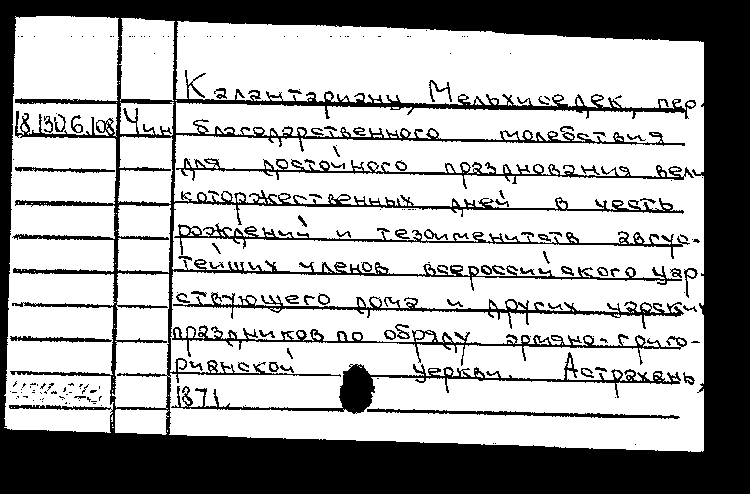 Калантарианц, Мельхиседек, пер.
18.130.6.108 Чин благодарственного молебствия
для достойного празднования вели
которжественных дней в честь
рождений и тезоименитств авгус-
тейших членов всероссийского цар-
ствующего дома и других царских
праздников по обряду армяно-григо-
рианской церкви. Астрахань,
1871.